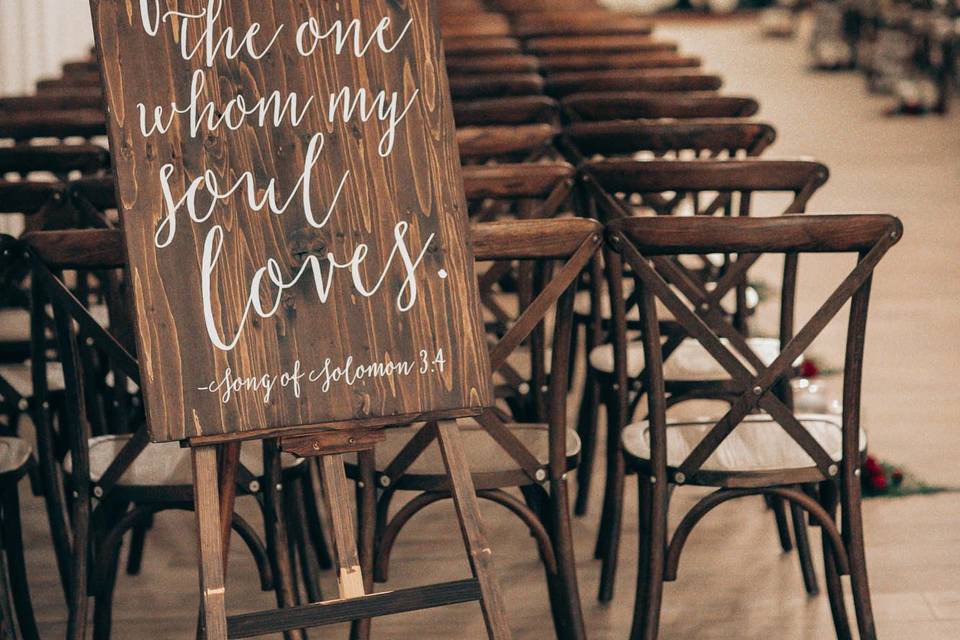 the one
whom my
soul
loves.
-Song of Solomon 3:4